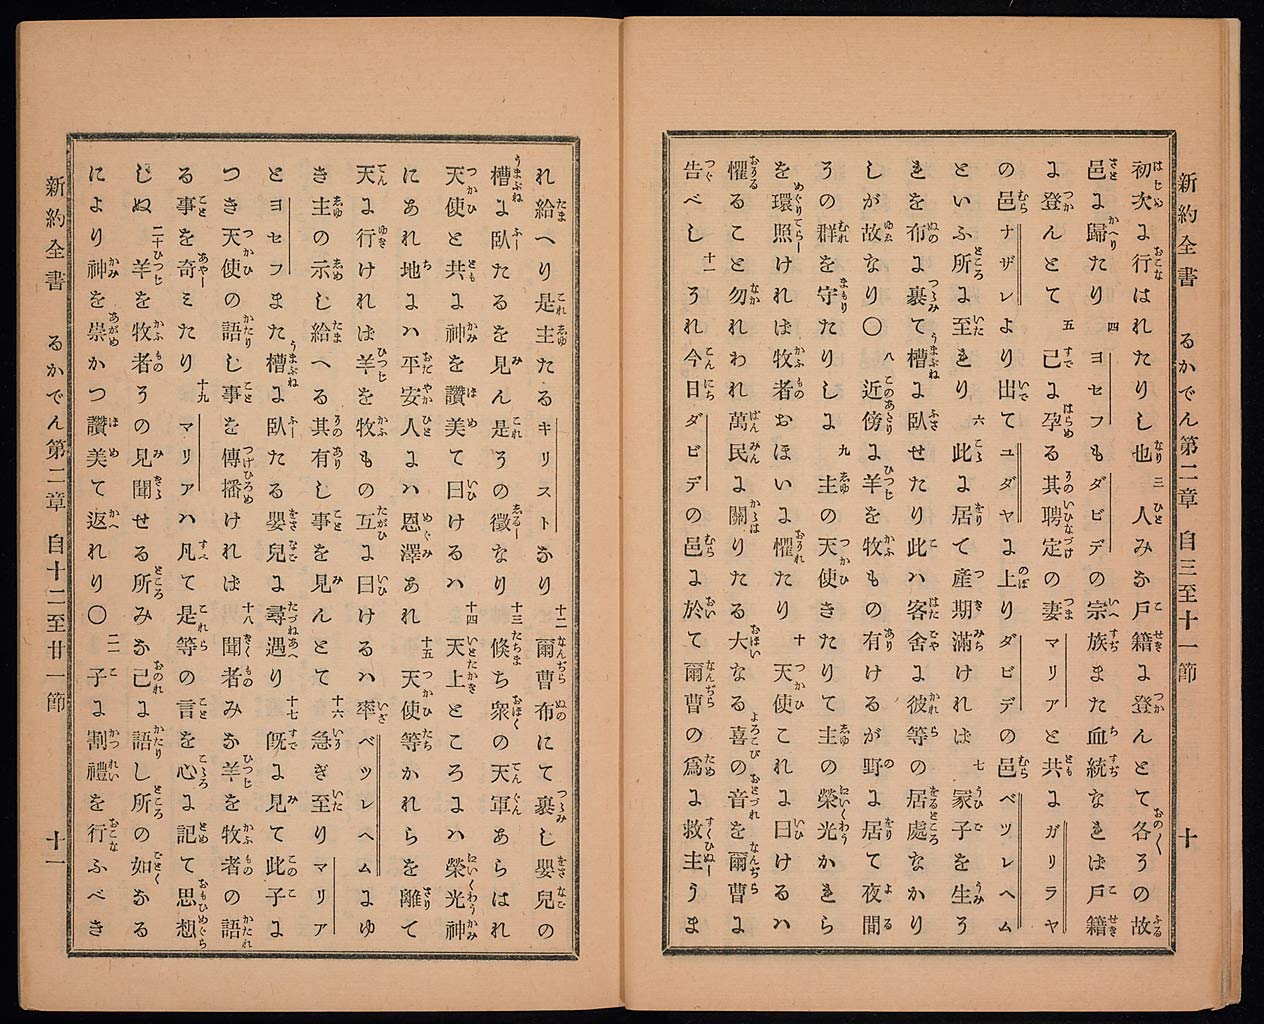 新約全書 るかでん第二章 自三至十一節 十
初次に行はれたりし也 三 人みな戸籍に登んとて各その故
邑に歸たり 四 ヨセフもダビデの宗族また血統なれば戸籍
に登んとて 五 已に孕る其聘定の妻マリアと共にガリラヤ
の邑ナザレより出てユダヤに上りダビデの邑ベツレヘム
といふ所に至れり 六 此に居て産期滿ければ 七 冢子を生そ
れを布に裹て槽に臥せたり此ハ客舍に彼等の居處なかり
しが故なり〇 八 近傍に羊を牧もの有けるが野に居て夜間
その群を守たりしに 九 主の天使きたりて主の榮光かれら
を環照ければ牧者おほいに懼たり 十 天使これに曰けるハ
懼ること勿れわれ萬民に關りたる大なる喜の音を爾曹に
告べし 十一 それ今日ダビデの邑に於て爾曹の爲に救主うま
れ給へり是主たるキリストなり 十二 爾曹布にて裹し嬰兒の
槽に臥たるを見ん是その徴なり 十三 倏ち衆の天軍あらはれ
天使と共に神を讚美て曰けるハ 十四 天上ところにハ榮光神
にあれ地にハ平安人にハ恩澤あれ 十五 天使等かれらを離て
天に行ければ羊を牧もの互に曰けるハ率ベツレヘムにゆ
き主の示し給へる其有し事を見んとて 十六 急ぎ至りマリア
とヨセフまた槽に臥たる嬰兒に尋遇り 十七 既に見て此子に
つき天使の語し事を傳播ければ 十八 聞者みな羊を牧者の語
る事を奇ミたり 十九 マリアハ凡て是等の言を心に記て思想
しぬ 二十 羊を牧者その見聞せる所みな己に語し所の如なる
により神を崇かつ讚美て返れり〇 二一 子に割禮を行ふべき
新約全書 るかでん第二章 自十二至廿一節 十一